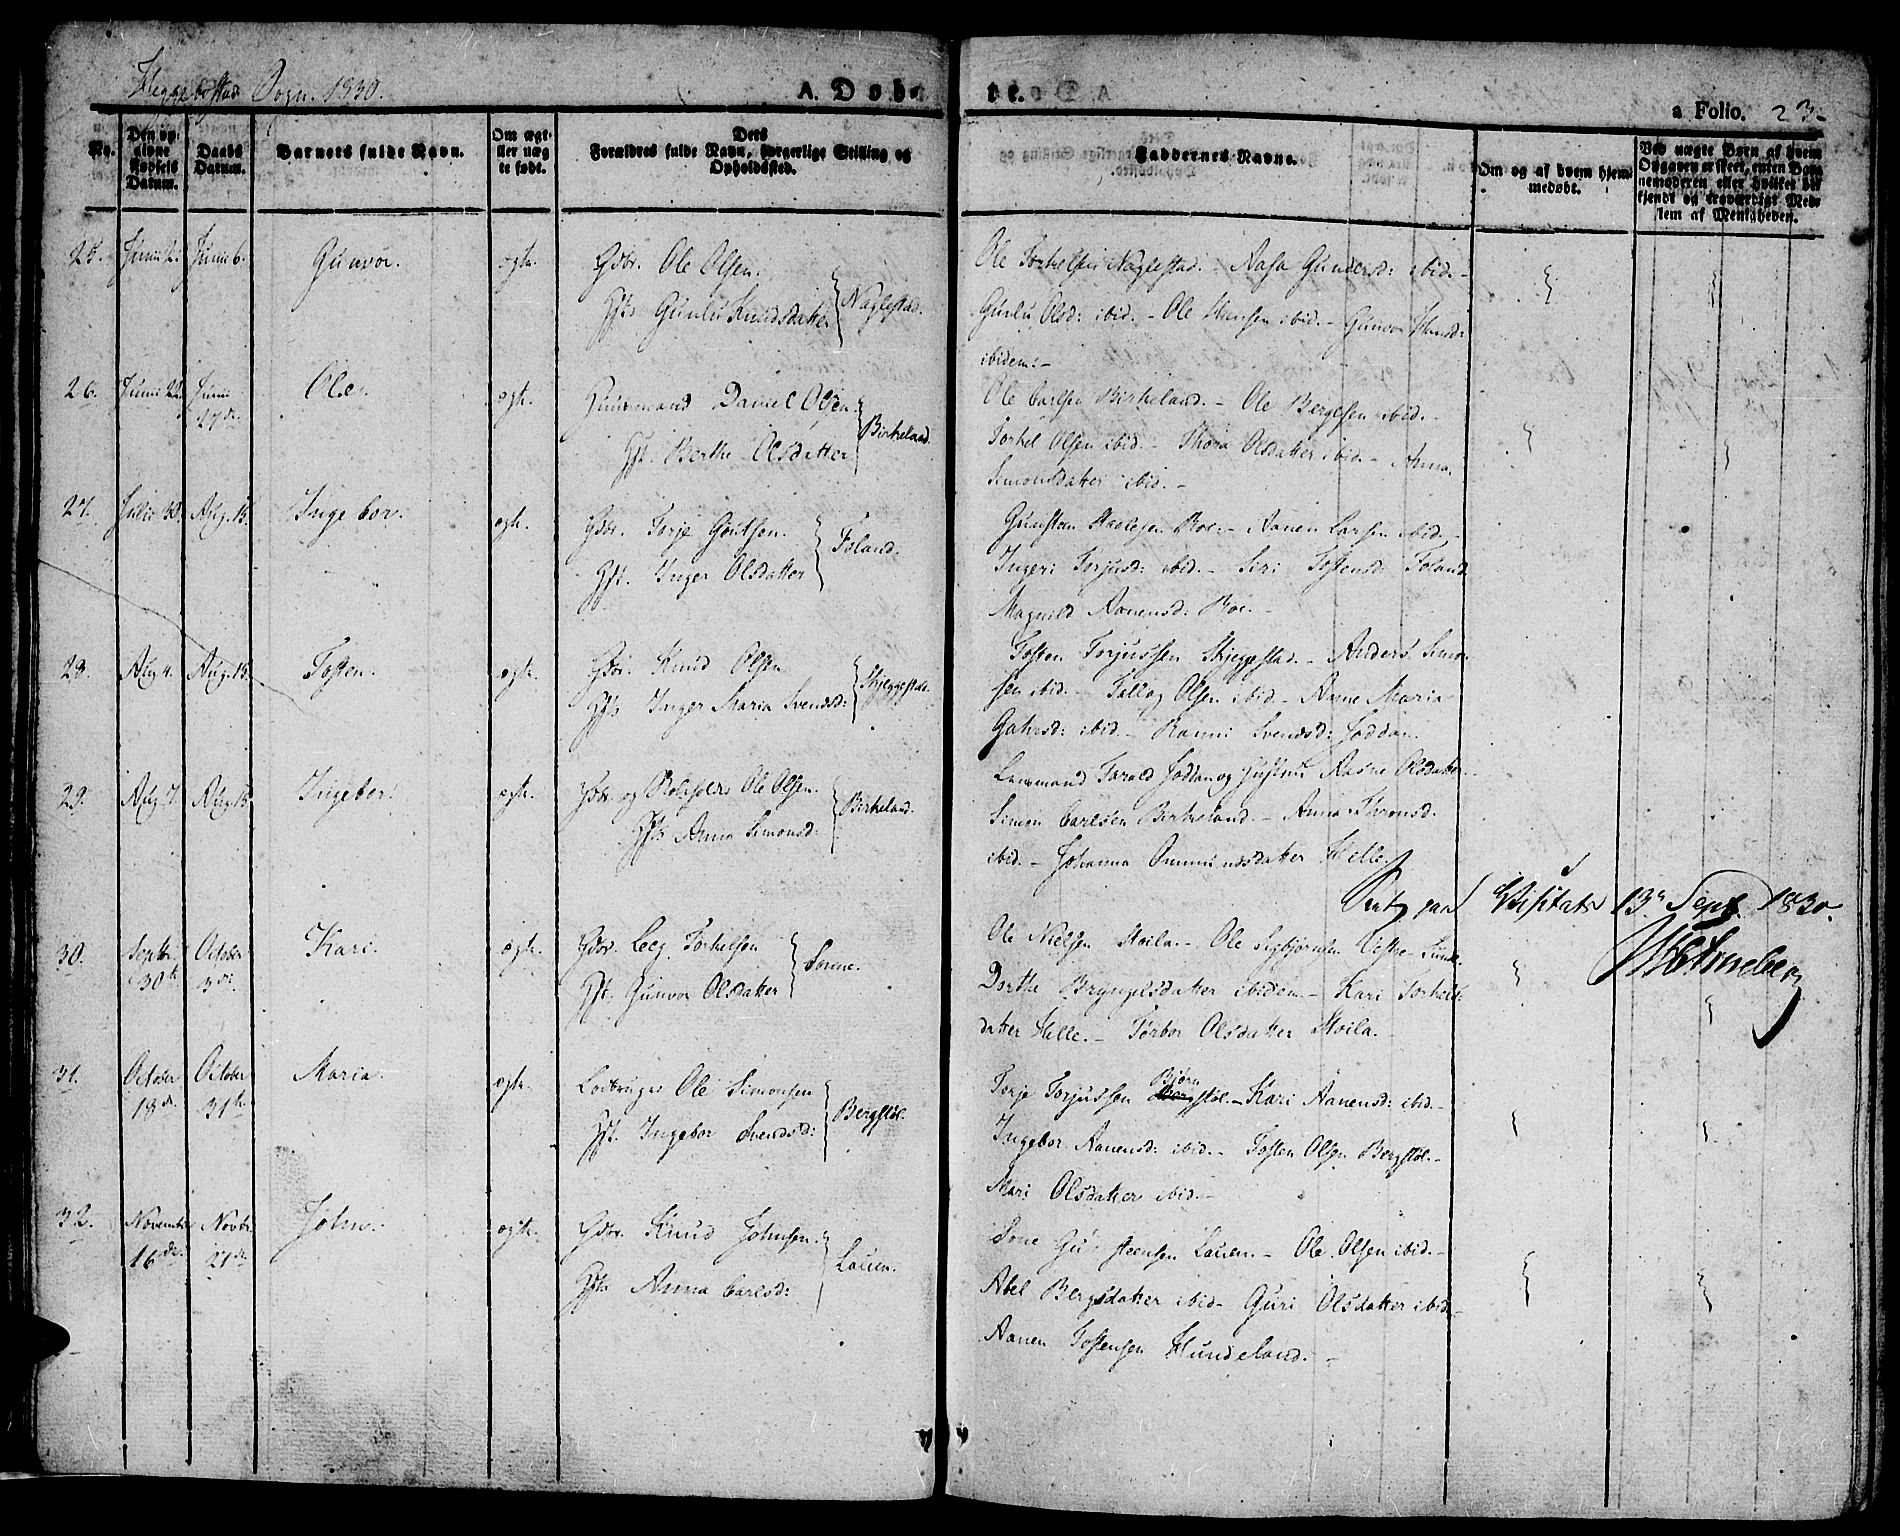 Heggebostad Sogn. 1830.
A. Døbte.
a Folio. 23.
No.
Den opgivne Fødsels Datum.
Daabs Datum.
Barnets fulde Navn.
Om ægte eller uægte født.
Dets Forældres fulde Navn, borgerlige Stilling og Opholdssted.
Faddernes Navne.
Om og af hvem hjemmedøbt.
Ved uægte Børn af hvem Opgaven er skeet, enten Barnemoderen eller hvilket bekjendt og troværdigt Medlem af Menigheden.
25. Junii 2. Junii 6. Gunvor. ægte. Gdbr. Ole Olsen.
Hst. Gunlu Knudsdatter Naglestad.
Ole Torkelsen Naglestad. - Aasa Gundersd: ibid. -
Gunlu Olsd: ibid. - Ole Hansen ibid. - Gunvor Hansd:
ibidem. -
26. Junii 22. Junii 27de. Ole. ægte. Huusmand Daniel Olsen.
Hst. Berthe Olsdatter Birkeland.
Ole Carlsen Birkeland. - Ole Bergesen ibid. -
Torkel Olsen ibid. - Thora Olsdatter ibid. - Anna
Simonsdatter ibid. -
27. Julii 30. Aug. 15. Ingebor. ægte. Gdbr. Torje Goutsen.
Hst. Inger Olsdatter Foland.
Gunsten Roe. - Aanen Larsen ibid. -
Ingeri Torjusd: ibid. - Siri Tostensd: Foland
Magnild Aanensd: Roe. -
28. Aug 4. Aug. 15. Tosten. ægte. Gdbr. Knud Olsen
Hst. Inger Maria Svendsd: Skjeggestad.
Tosten Torjussen Skjeggestad. - Anders Simon-
sen ibid. - Tallag Olsen ibid. - Anne Maria
Gahrsd: ibid. - Ranni Svendsd: Joddan.
29. Aug. 7. Aug. 15 Ingebor. ægte. Gdbr. og Ole Olsen.
Hst. Anna Simonsd: Birkeland.
Lensmand Tarald Jodlan og Hustru Aasne Olsdatter. -
Simon Carlsen Birkeland. - Anna Thronsd.
ibid. - Johanna Ommundsdatter Helle.
Visitats 13. Sept. 1830.
30. Septbr. 30te October 3die. Kari. ægte. Gdbr. Torkelsen
Hst. Gunvor Olsdatter
Ole Nielsen Stoila. - Ole Sigbjørnsen Vestre-Sunde.
Dorthe Bryngelsdatter ibidem - Kari Torkels-
datter Helle. - Torbor Olsdatter Stoila. -
31. October 18de. October 31te. Maria. ægte. Lodbruger Ole Simonsen
Hst. Ingebor Svendsd: Bergstøl.
Torje Torjussen Bjørnstøl. - Kari Aanensd: ibid. -
Ingebor Aanensd: ibid. - Tosten Olsen Bergstøl. -
Mari Olsdatter ibid. -
32. November 16de. Novbr 21de. John. ægte. Gdbr. Knud Johnsen.
Hst. Anna Carlsd: Lauen.
Tone Gunsteensen Lauen. - Ole Olsen ibid. -
Abel Bergsdatter ibid. - Guri Olsdatter ibid. -
Aanen Tostensen Hundeland. -